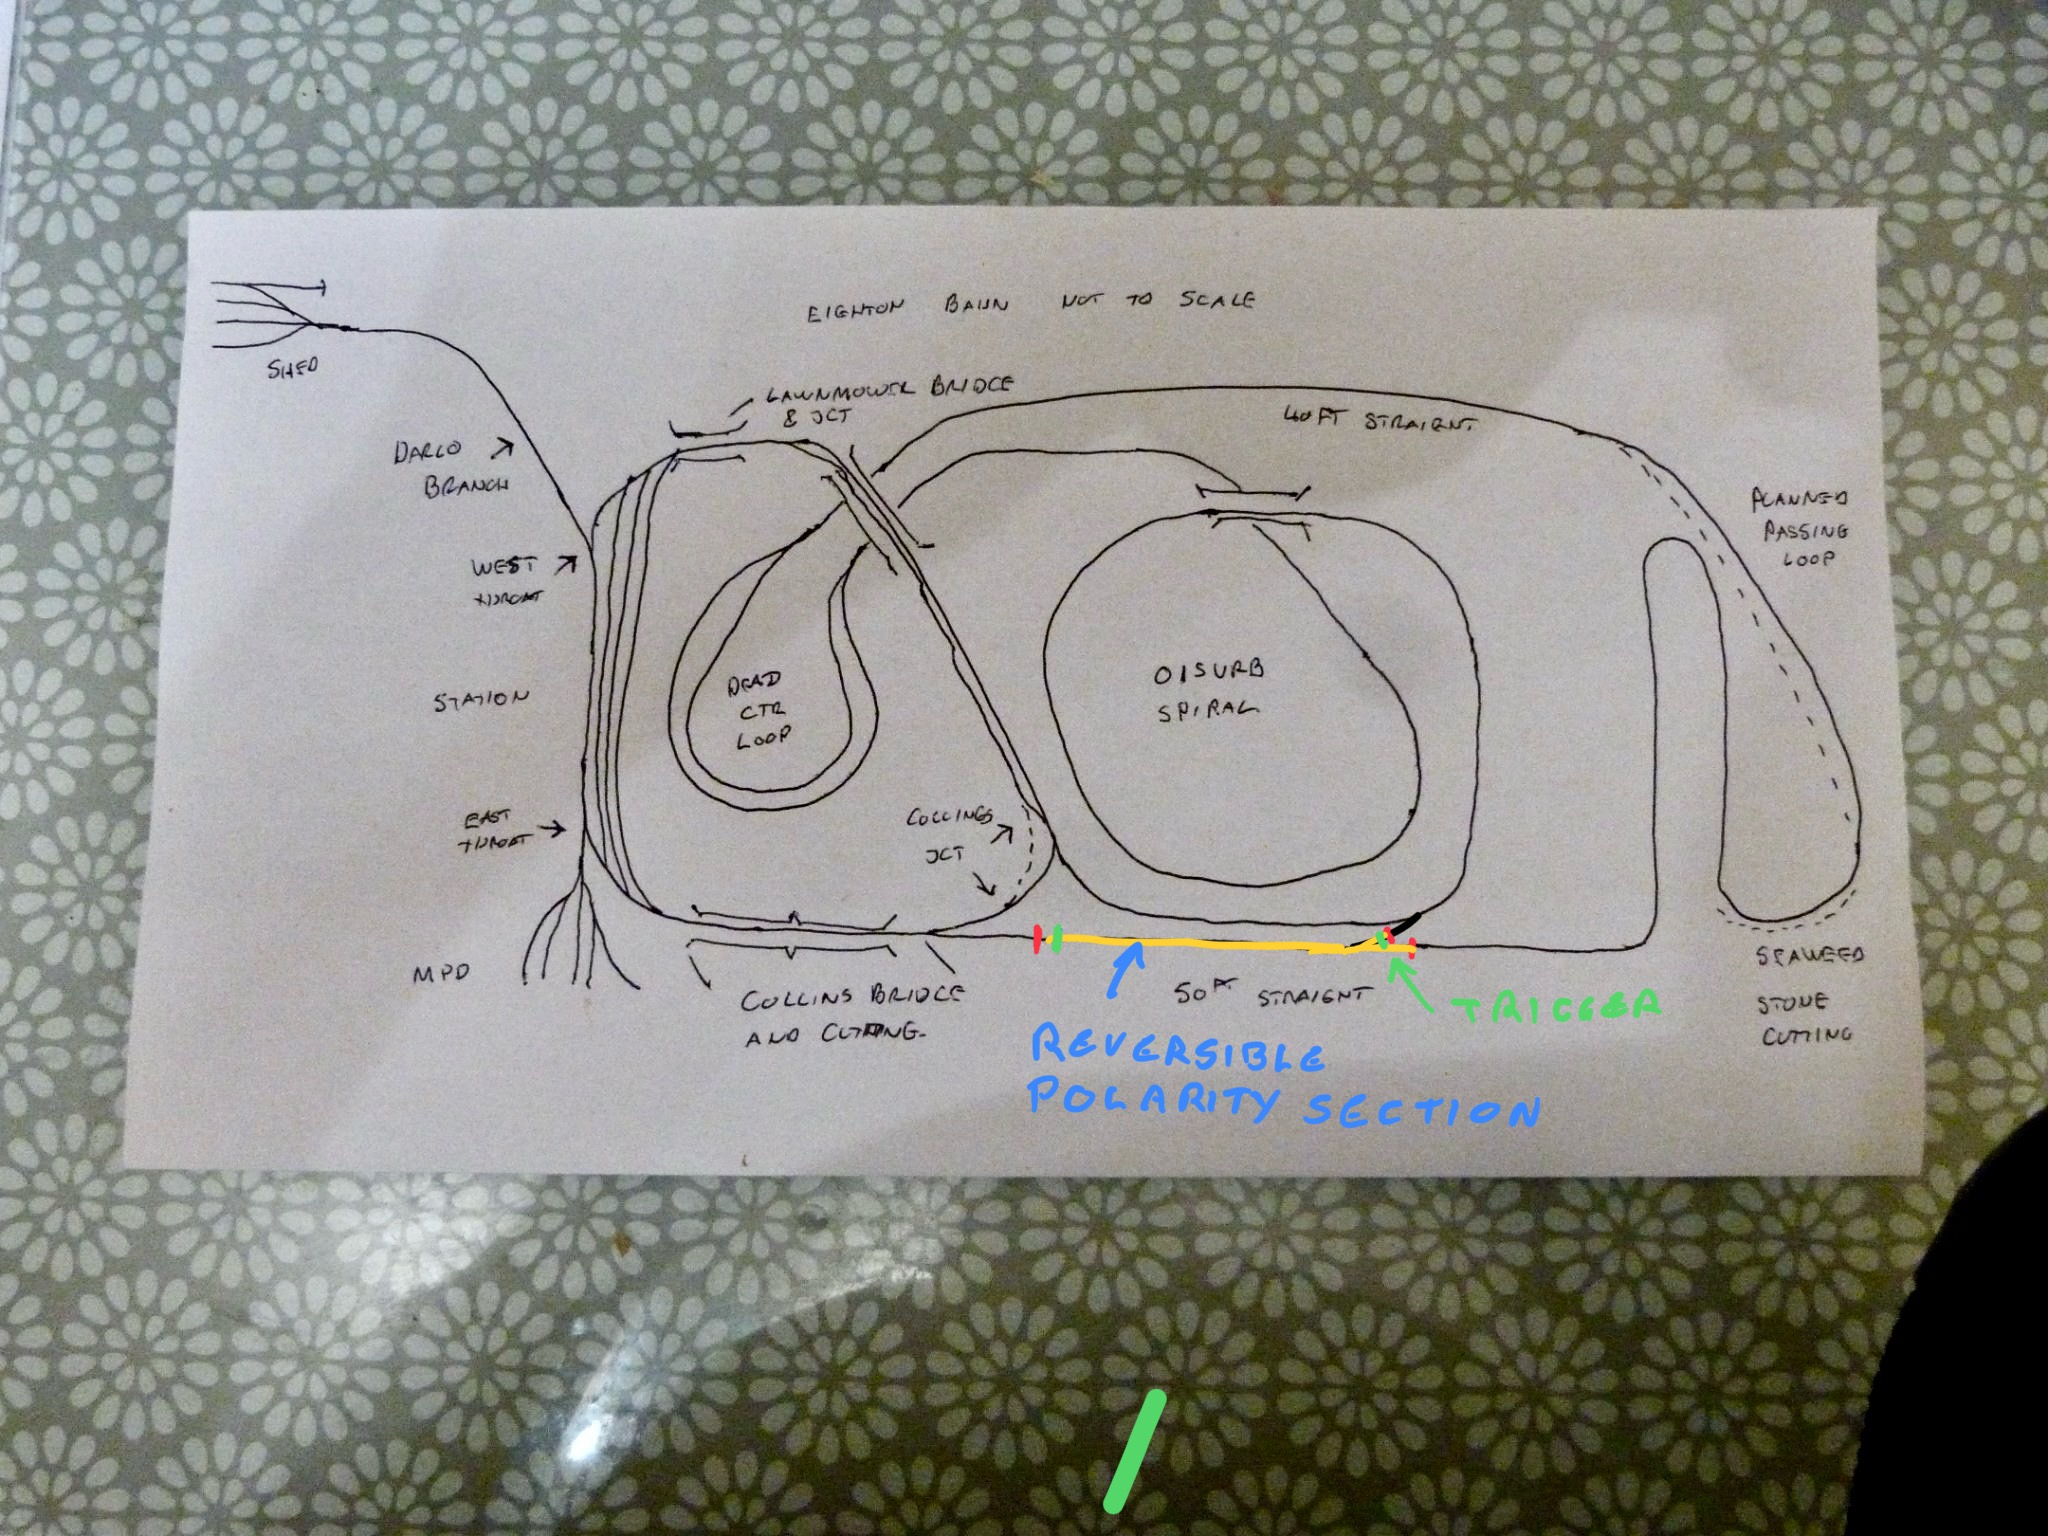 EIGHTON BAHN NOT TO SCALE
SHED
LAWNMOWER BRIDGE
& JCT
40FT STRAIGHT
DARLO
BRANCH
PLANNED
PASSING
LOOP
WEST
THROAT
STATION
DEAD
CTR
LOOP
DISURB
SPIRAL
EAST
THROAT
COLLINGS
JCT
MPD
COLLINS BRIDGE
AND CUTTING
50FT STRAIGHT
TRIGGER
REVERSIBLE
POLARITY SECTION
SEAWEED
STONE
CUTTING